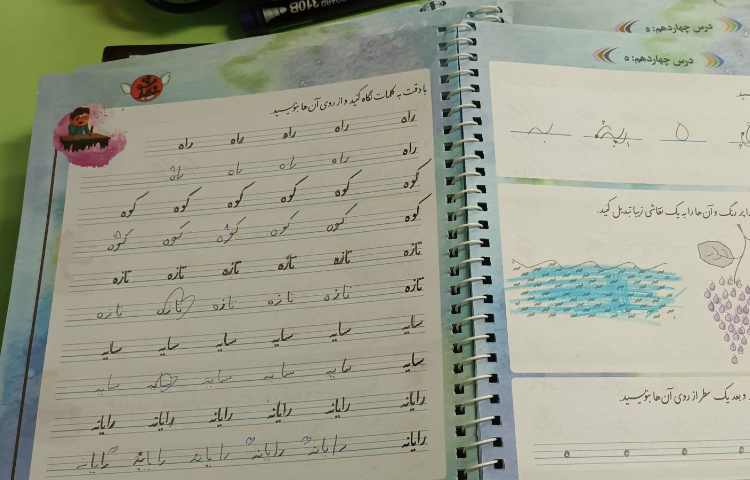 درس چهاردهم: ه
درس چهاردهم: ه
با دقت به کلمات نگاه کنید و از روی آن‌ها بنویسید.
راه راه راه راه راه
راه راه راه راه
کوه کوه کوه کوه کوه کوه
کوه کوه کوه کوه کوه
تازه تازه تازه تازه تازه تازه
تازه تازه تازه تازه تازه تازه
سایه سایه سایه سایه سایه سایه
سایه سایه سایه سایه سایه سایه
رایانه رایانه رایانه رایانه رایانه رایانه
رایانه رایانه رایانه رایانه رایانه رایانه
رنگ و آن‌ها را به یک نقاشی زیبا تبدیل کنید.
و بعد یک سطر از روی آن‌ها بنویسید.
ه ه ه ه
310B